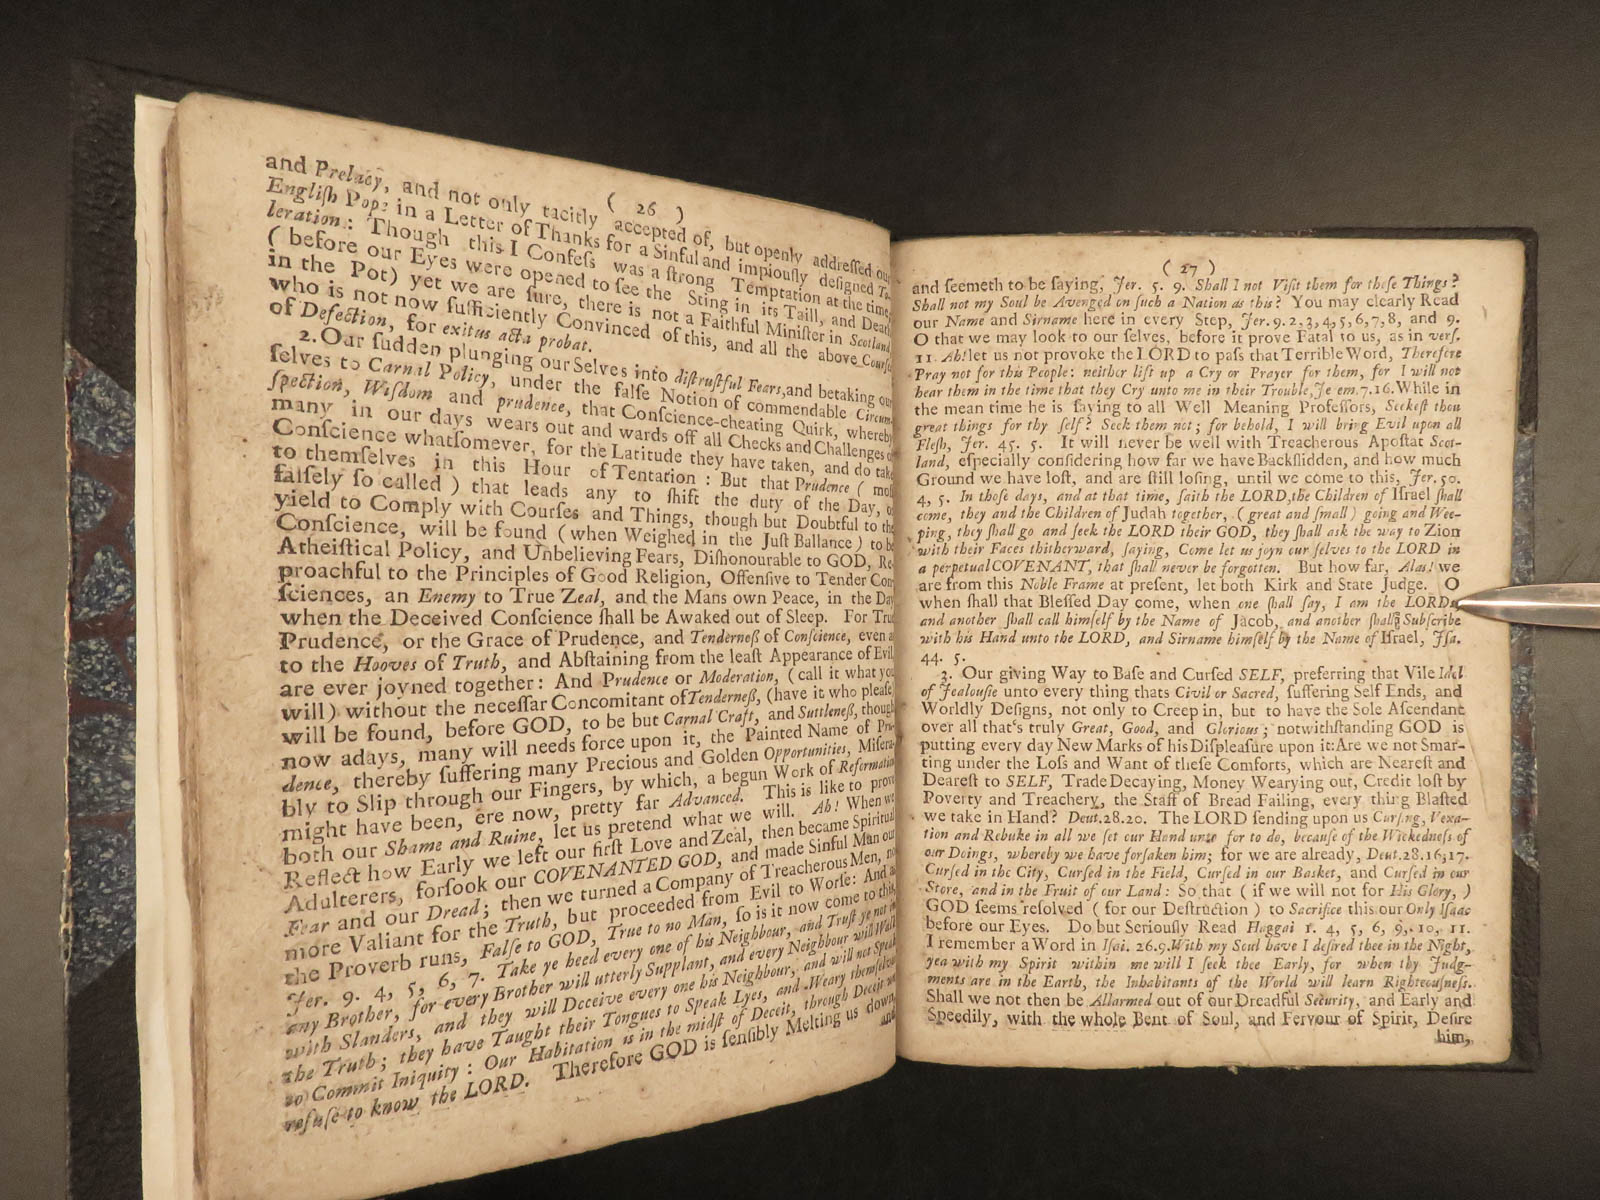 ( 26 )
and Prelacy, and not only tacitly accepted of, but openly addreſſed our
Engliſh Pope in a Letter of Thanks for a Sinful and impiouſly deſigned To-
leration: Though this I Confeſs was a ſtrong Temptation at the time,
( before our Eyes were opened to ſee the Sting in its Taill, and Death
in the Pot) yet we are ſure, there is not a Faithful Miniſter in Scotland
who is not now ſufficiently Convinced of this, and all the above Courſe
of Defection, for exitus acta probat.
2. Our ſudden plunging our Selves into diſtruſtful Fears, and betaking our
ſelves to Carnal Policy, under the falſe Notion of commendable Circum-
ſpection, Wiſdom and prudence, that Conſcience-cheating Quirk, whereby
many in our days wears out and wards off all Checks and Challenges of
Conſcience whatſomever, for the Latitude they have taken, and do take
to themſelves in this Hour of Tentation : But that Prudence ( moſt
falſely ſo called ) that leads any to ſhift the duty of the Day, or
yield to Comply with Courſes and Things, though but Doubtful to the
Conſcience, will be found ( when Weighed in the Juſt Ballance ) to be
Atheiſtical Policy, and Unbelieving Fears, Diſhonourable to GOD, Re-
proachful to the Principles of Good Religion, Offenſive to Tender Con-
ſciences, an Enemy to True Zeal, and the Mans own Peace, in the Day
when the Deceived Conſcience ſhall be Awaked out of Sleep. For True
Prudence, or the Grace of Prudence, and Tenderneſs of Conſcience, even as
to the Hooves of Truth, and Abſtaining from the leaſt Appearance of Evil,
are ever joyned together: And Prudence or Moderation, (call it what you
will) without the neceſſar Concomitant of Tenderneſs, (have it who pleaſe)
will be found, before GOD, to be but Carnal Craft, and Suttleneſs, though
now adays, many will needs force upon it, the Painted Name of Pru-
dence, thereby ſuffering many Precious and Golden Opportunities, Miſera-
bly to Slip through our Fingers, by which, a begun Work of Reformation
might have been, ere now, pretty far Advanced. This is like to prove
both our Shame and Ruine, let us pretend what we will. Ah! When we
Reflect how Early we left our firſt Love and Zeal, then became Spiritual
Adulterers, forſook our COVENANTED GOD, and made Sinful Man our
Fear and our Dread; then we turned a Company of Treacherous Men, no
more Valiant for the Truth, but proceeded from Evil to Worſe: And as
the Proverb runs, Falſe to GOD, True to no Man, ſo is it now come to this,
Jer. 9. 4, 5, 6, 7. Take ye heed every one of his Neighbour, and Truſt ye not in
any Brother, for every Brother will utterly Supplant, and every Neighbour will Walk
with Slanders, and they will Deceive every one his Neighbour, and will not Speak
the Truth; they have Taught their Tongues to Speak Lyes, and Weary themſelves
to Commit Iniquity : Our Habitation is in the midſt of Deceit, through Deceit
refuſe to know the LORD. Therefore GOD is ſenſibly Melting us down,
and
( 27 )
and ſeemeth to be ſaying, Jer. 5. 9. Shall I not Viſit them for theſe Things?
Shall not my Soul be Avenged on ſuch a Nation as this? You may clearly Read
our Name and Sirname here in every Step, Jer. 9. 2, 3, 4, 5, 6, 7, 8, and 9.
O that we may look to our ſelves, before it prove Fatal to us, as in verſ.
11. Ah! let us not provoke the LORD to paſs that Terrible Word, Therefore
Pray not for this People: neither lift up a Cry or Prayer for them, for I will not
hear them in the time that they Cry unto me in their Trouble, Je em. 7. 16. While in
the mean time he is ſaying to all Well Meaning Profeſſors, Seekeſt thou
great things for thy ſelf? Seek them not; for behold, I will bring Evil upon all
Fleſh, Jer. 45. 5. It will never be well with Treacherous Apoſtat Scot-
land, eſpecially conſidering how far we have Backſlidden, and how much
Ground we have loſt, and are ſtill loſing, until we come to this, Jer. 50.
4, 5. In thoſe days, and at that time, ſaith the LORD, the Children of Iſrael ſhall
come, they and the Children of Judah together, ( great and ſmall ) going and Wee-
ping, they ſhall go and ſeek the LORD their GOD, they ſhall ask the way to Zion
with their Faces thitherward, ſaying, Come let us joyn our ſelves to the LORD in
a perpetual COVENANT, that ſhall never be forgotten. But how far, Alas! we
are from this Noble Frame at preſent, let both Kirk and State Judge. O
when ſhall that Bleſſed Day come, when one ſhall ſay, I am the LORDs,
and another ſhall call himſelf by the Name of Jacob, and another ſhall Subſcribe
with his Hand unto the LORD, and Sirname himſelf by the Name of Iſrael, Iſa.
44. 5.
3. Our giving Way to Baſe and Curſed SELF, preferring that Vile Idol
of Jealouſie unto every thing thats Civil or Sacred, ſuffering Self Ends, and
Worldly Deſigns, not only to Creep in, but to have the Sole Aſcendant
over all that's truly Great, Good, and Glorious; notwithſtanding GOD is
putting every day New Marks of his Diſpleaſure upon it: Are we not Smar-
ting under the Loſs and Want of theſe Comforts, which are Neareſt and
Deareſt to SELF, Trade Decaying, Money Wearying out, Credit loſt by
Poverty and Treachery, the Staff of Bread Failing, every thing Blaſted
we take in Hand? Deut. 28. 20. The LORD ſending upon us Curſing, Vexa-
tion and Rebuke in all we ſet our Hand unto for to do, becauſe of the Wickedneſs of
our Doings, whereby we have forſaken him; for we are already, Deut. 28. 16, 17.
Curſed in the City, Curſed in the Field, Curſed in our Basket, and Curſed in our
Store, and in the Fruit of our Land: So that ( if we will not for His Glory, )
GOD ſeems reſolved ( for our Deſtruction ) to Sacrifice this our Only Iſaac
before our Eyes. Do but Seriouſly Read Haggai 1. 4, 5, 6, 9, 10, 11.
I remember a Word in Iſai. 26. 9. With my Soul have I deſired thee in the Night,
yea with my Spirit within me will I ſeek thee Early, for when thy Judg-
ments are in the Earth, the Inhabitants of the World will learn Righteouſneſs.
Shall we not then be Allarmed out of our Dreadful Security, and Early and
Speedily, with the whole Bent of Soul, and Fervour of Spirit, Deſire
him,